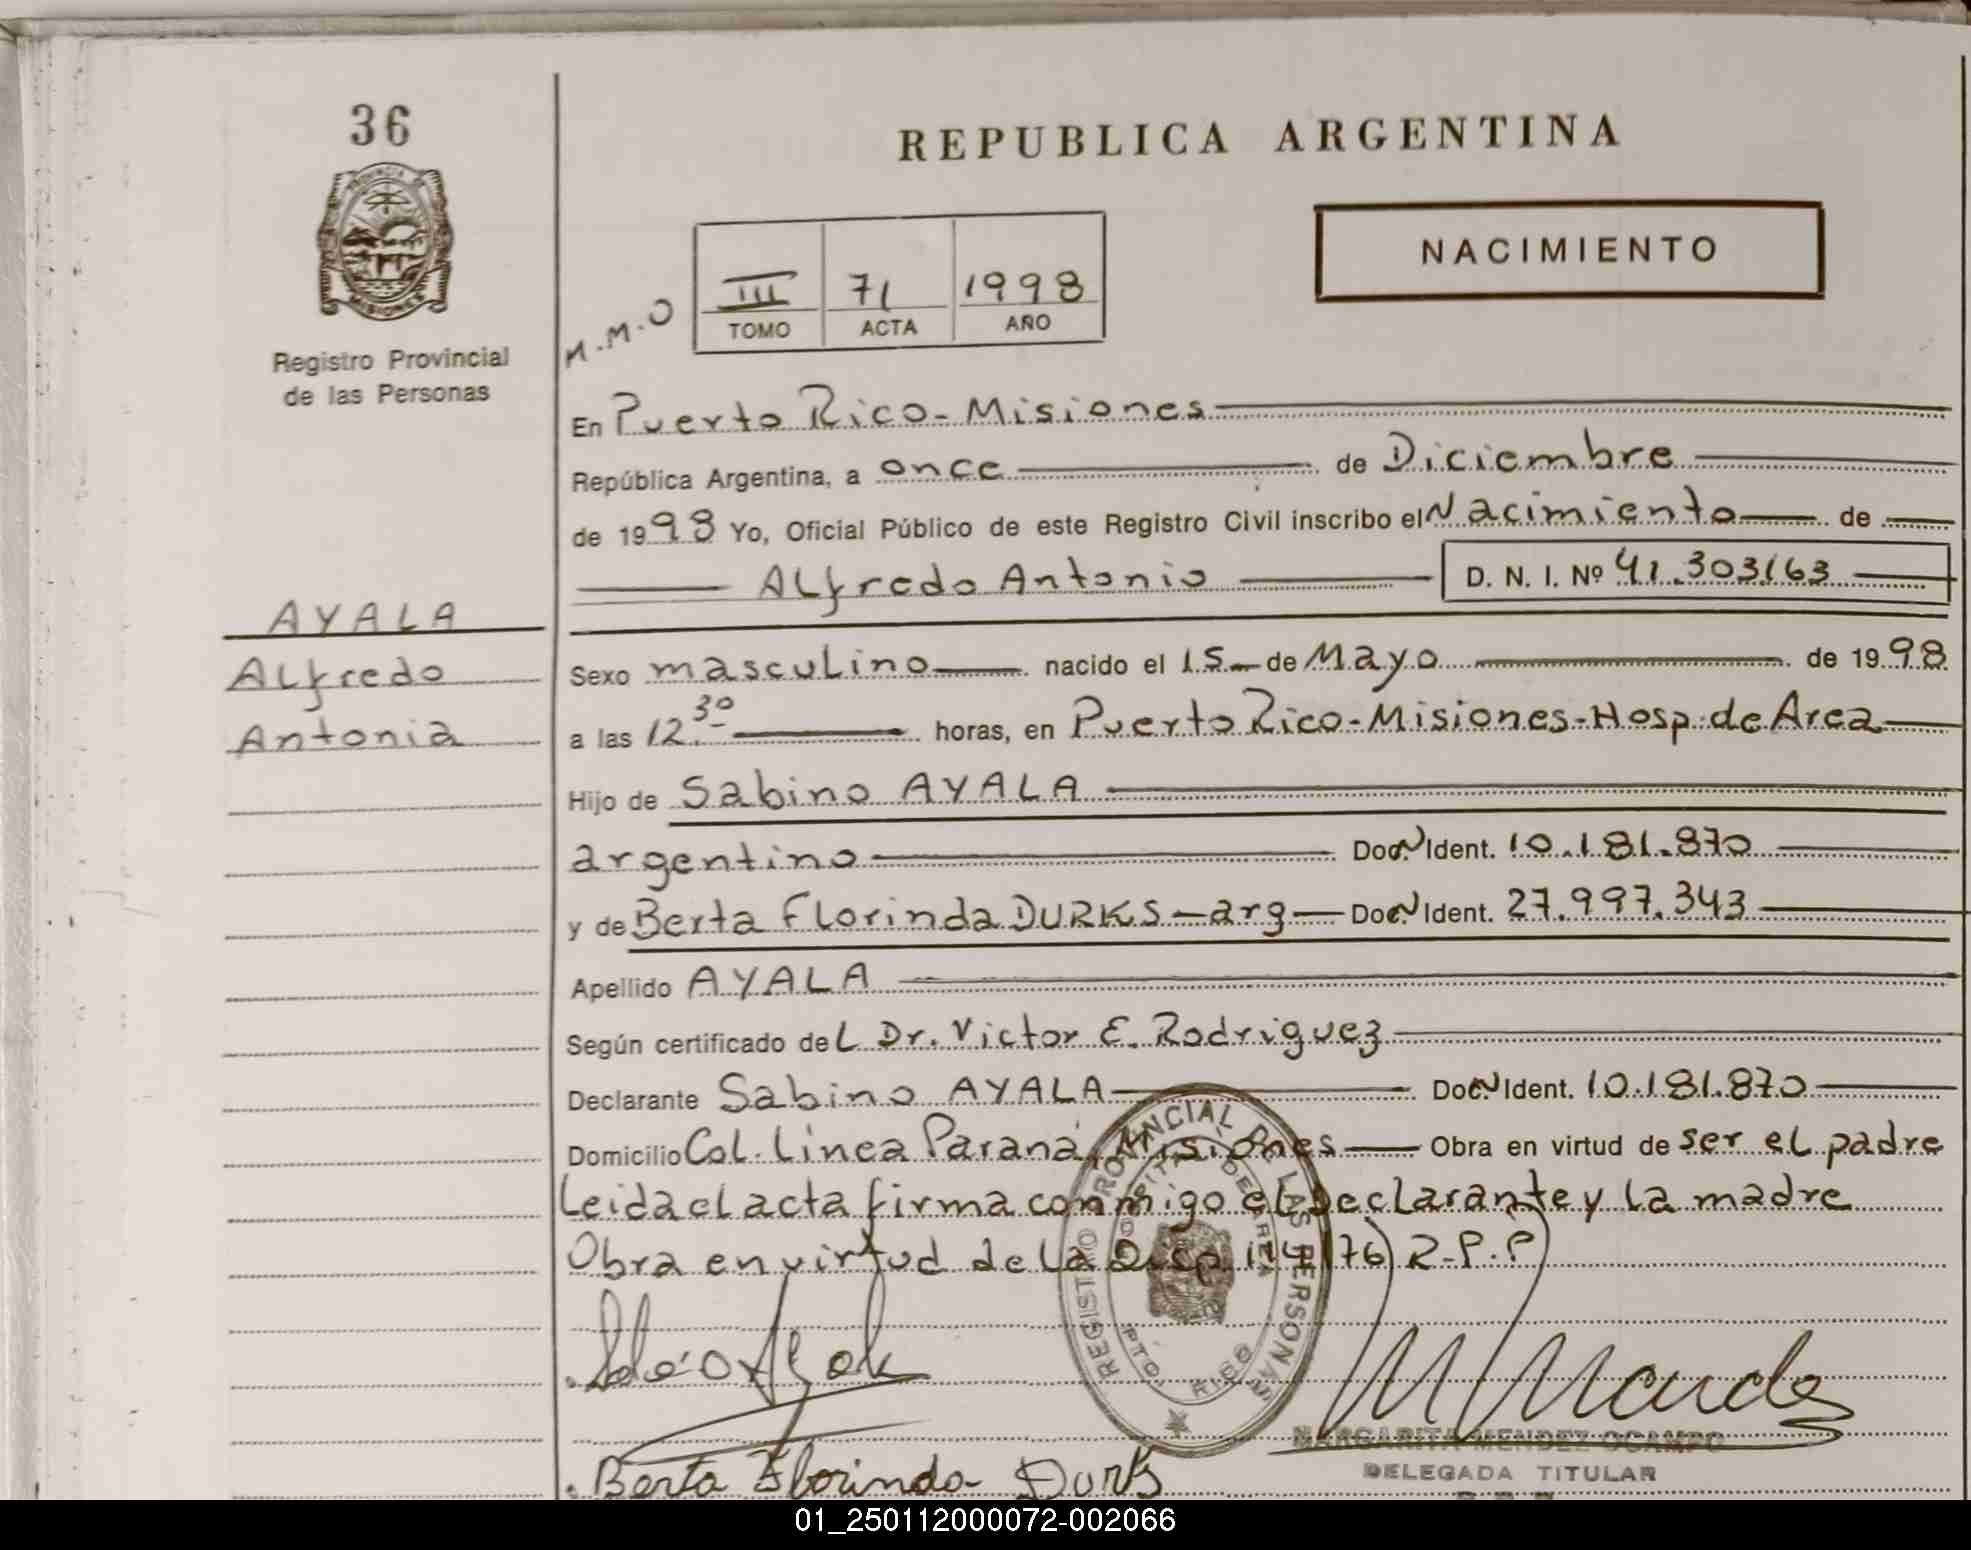 36
PROVINCIA DE
MISIONES
Registro Provincial
de las Personas
AYALA
Alfredo
Antonia
REPUBLICA ARGENTINA
NACIMIENTO
M.M.O
III 71 1998
TOMO ACTA AÑO
En Puerto Rico - Misiones
República Argentina, a once de Diciembre
de 1998 Yo, Oficial Público de este Registro Civil inscribo el Nacimiento de
Alfredo Antonio D. N. I. Nº 41.303163
Sexo masculino nacido el 15 de Mayo de 1998
a las 12.30 horas, en Puerto Rico-Misiones-Hosp. de Area
Hijo de Sabino AYALA
argentino Doc. N Ident. 10.181.870
y de Berta Florinda DURKS - arg - Doc. N Ident. 27.997.343
Apellido AYALA
Según certificado del Dr. Victor E. Rodriguez
Declarante Sabino AYALA Doc. N Ident. 10.181.870
Domicilio Col. Línea Paraná, Misiones Obra en virtud de ser el padre
Leida el acta firma conmigo el Declarante y la madre
Obra en virtud de la Disp 174(76) R.P.P
REGISTRO PROVINCIAL DE LAS PERSONAS
HOSPITAL DE AREA
PTO. RICO
M Mende
MARGARITA MENDEZ OCAMPO
DELEGADA TITULAR
Berta Florinda Durks
01_250112000072-002066